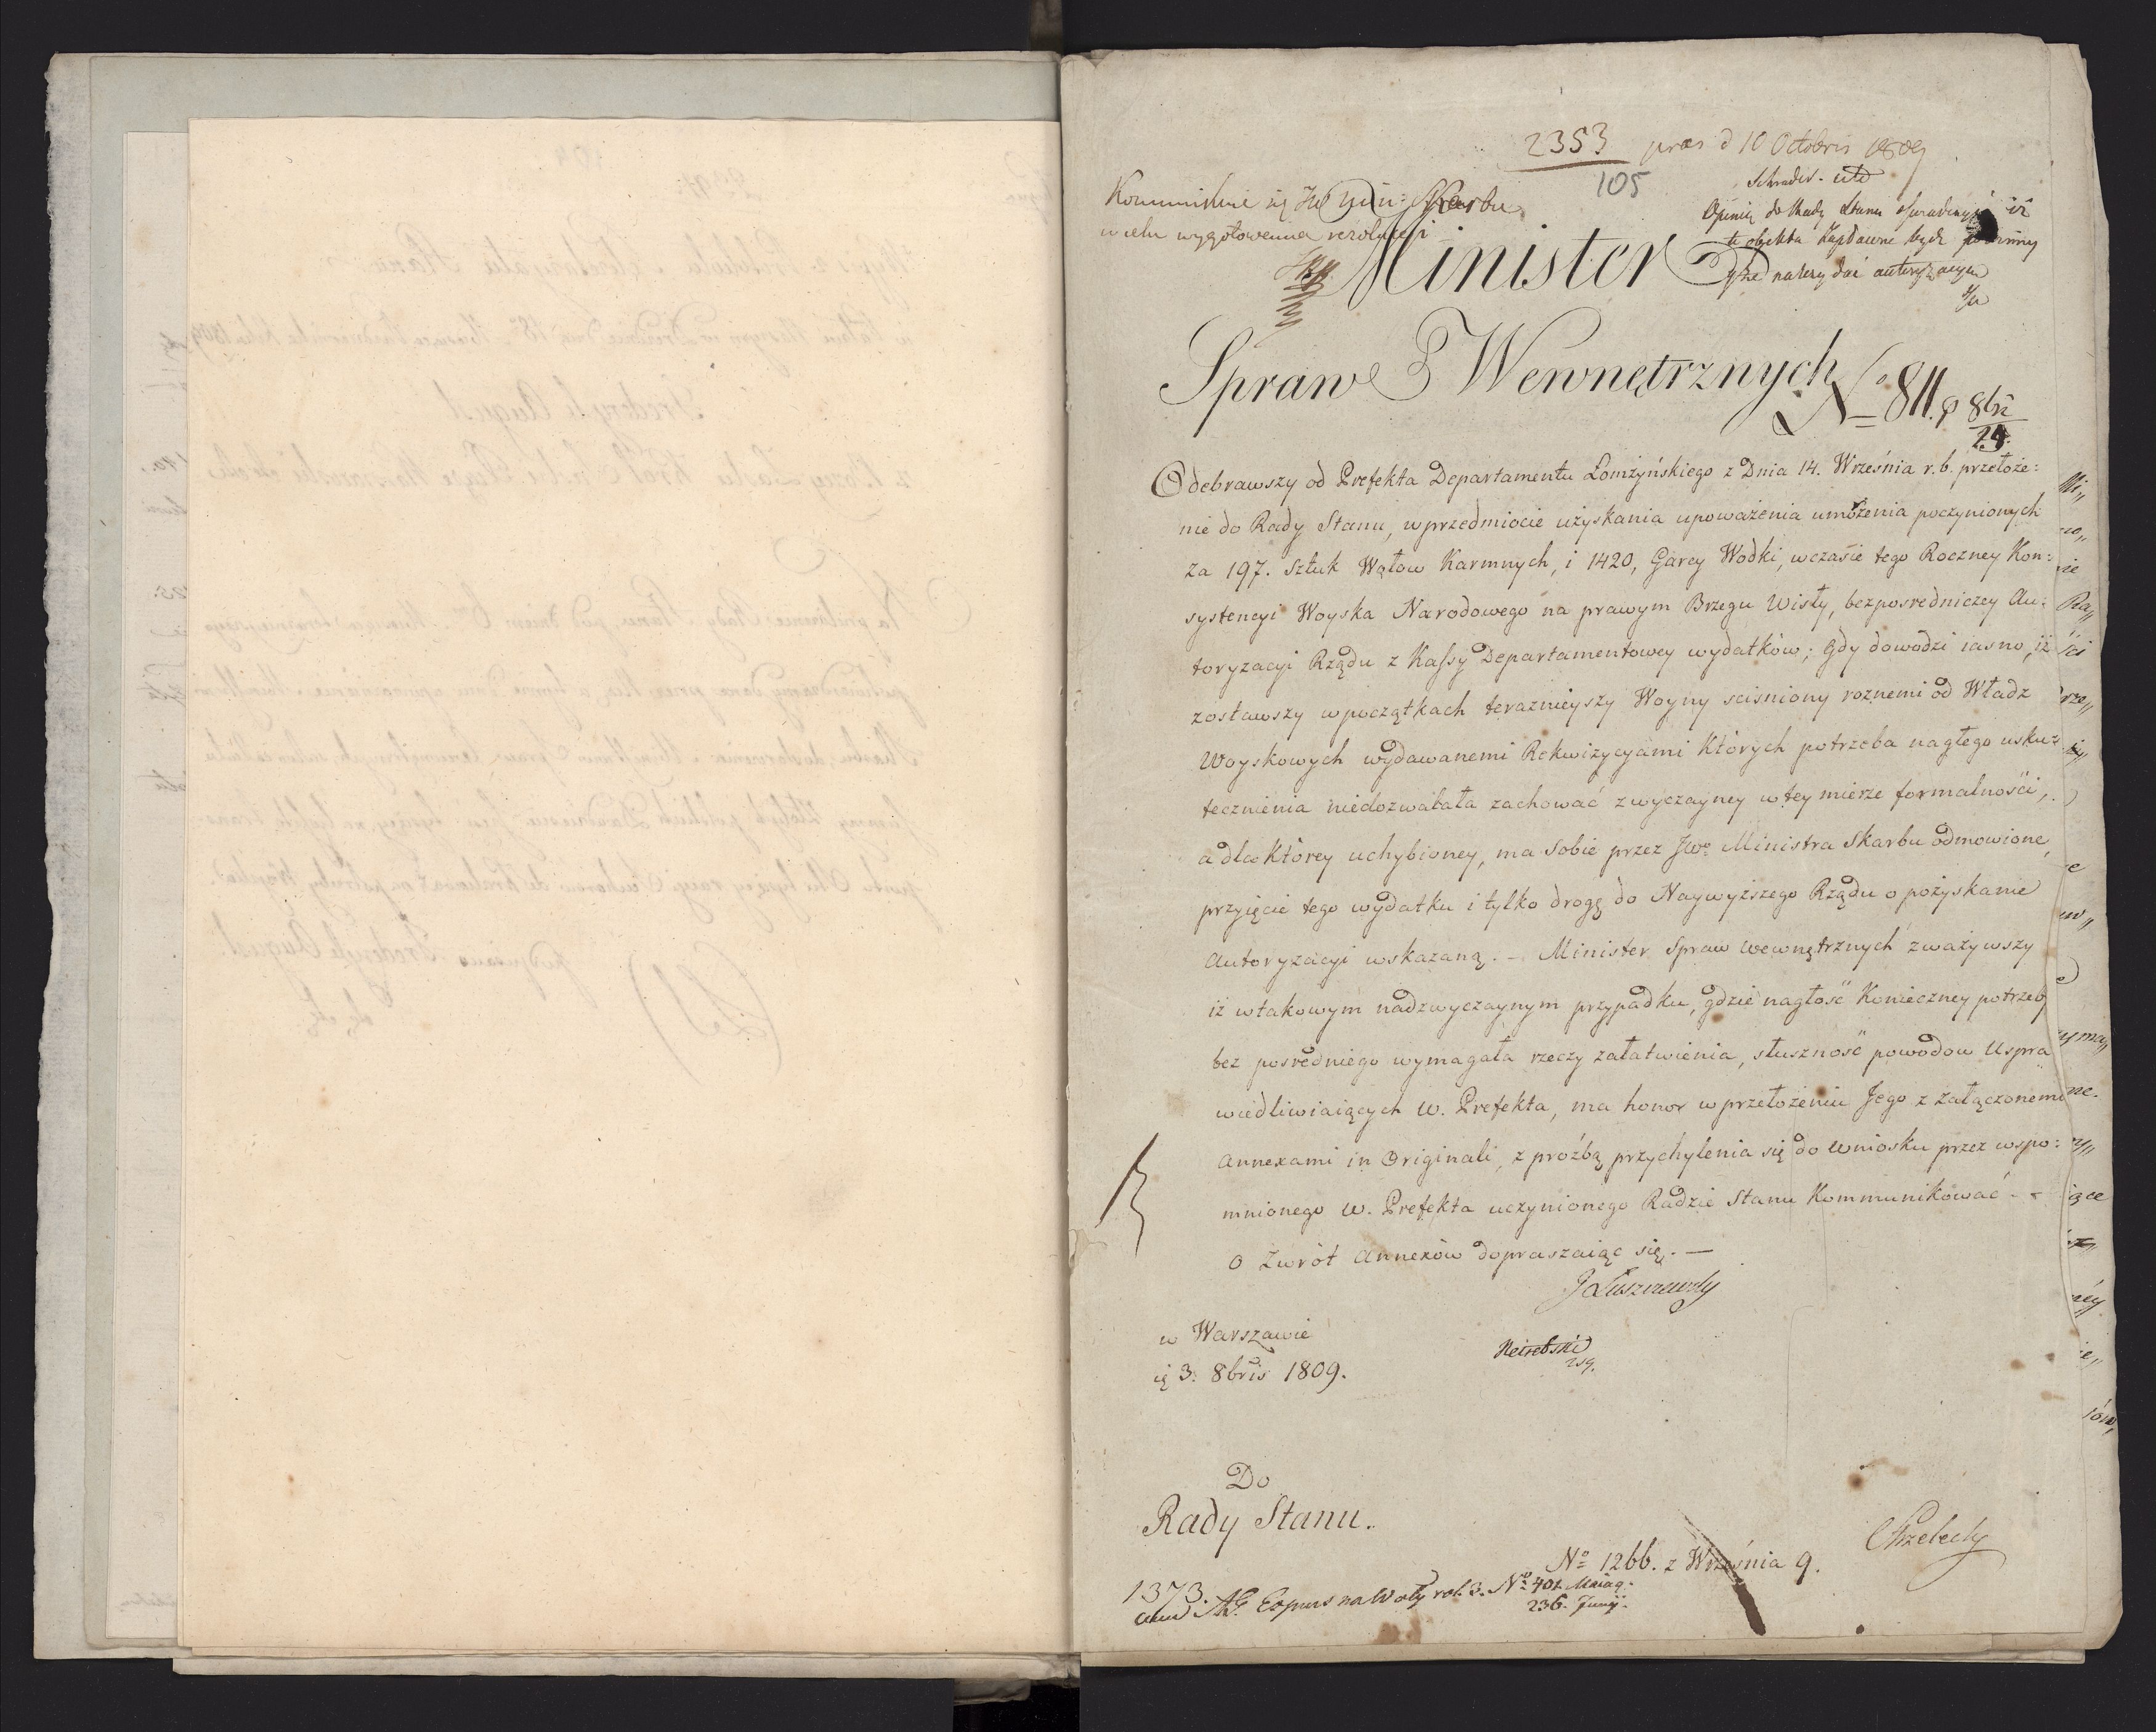 2353 præs d 10 Octobris 1809
105
Kommunikuie się JW Min: Skarbu
w celu wygotowania rezolucyi
Opinią do Rady Stanu iż
te obiekta być powinny
należy dać autoryzacyą
Minister
Spraw Wewnętrznych
No 811. 8br
24.
Odebrawszy od Prefekta Departamentu Łomżyńskiego z Dnia 14. Września r. b. przełoże:
nie do Rady Stanu, w przedmiocie użyskania upoważenia umożenia poczynionych
za 197. sztuk Wołow Karmnych, i 1420, Garcy Wodki, wczasie tego Roczney Kon:
systencyi Woyska Narodowego na prawym Brzegu Wisły, bezposredniczey Au:
toryzacyi Rządu z Kassy Departamentowey wydatków; gdy dowodzi iasno, iż
zostawszy w początkach terazniejszy Woyny scisniony roznemi od Władz
Woyskowych wydawanemi Rekwizycyami których potrzeba nagłego usku:
tecznienia niedozwalała zachować zwyczayney w tey mierze formalności,
a dla którey uchybioney, ma sobie przez JWo Ministra Skarbu odmowione,
przyięcie tego wydatku i tylko drogę do Naywyższego Rządu o pożyskanie
Autoryzacyi wskazaną. – Minister Spraw Wewnętrznych zważywszy
iż w takowym nadzwyczaynym przypadku, gdzie nagłość Konieczney potrzeby
bez posredniego wymagała rzeczy załatwienia, słuszność powodow Uspra
wiedliwiaiących W. Prefekta, ma honor w przełożeniu Jego z załączonemi
annexami in Originali, z prożbą przychylenia się do wniosku przez wspo:
mnionego W. Prefekta uczynionego Radzie Stanu Kommunikować. –
O Zwrót Annexów dopraszaiąc się. —
J Łuszczewsky
w Warszawie
3. 8bris 1809.
Do
Rady Stanu.
No 1266. z Września 9.
1373.
Expens na Woły vol. 3. No 401. Maia 9.
236. Junij.